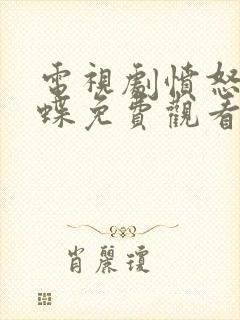 電視劇憤怒
蝶免費觀看
肖麗瓊